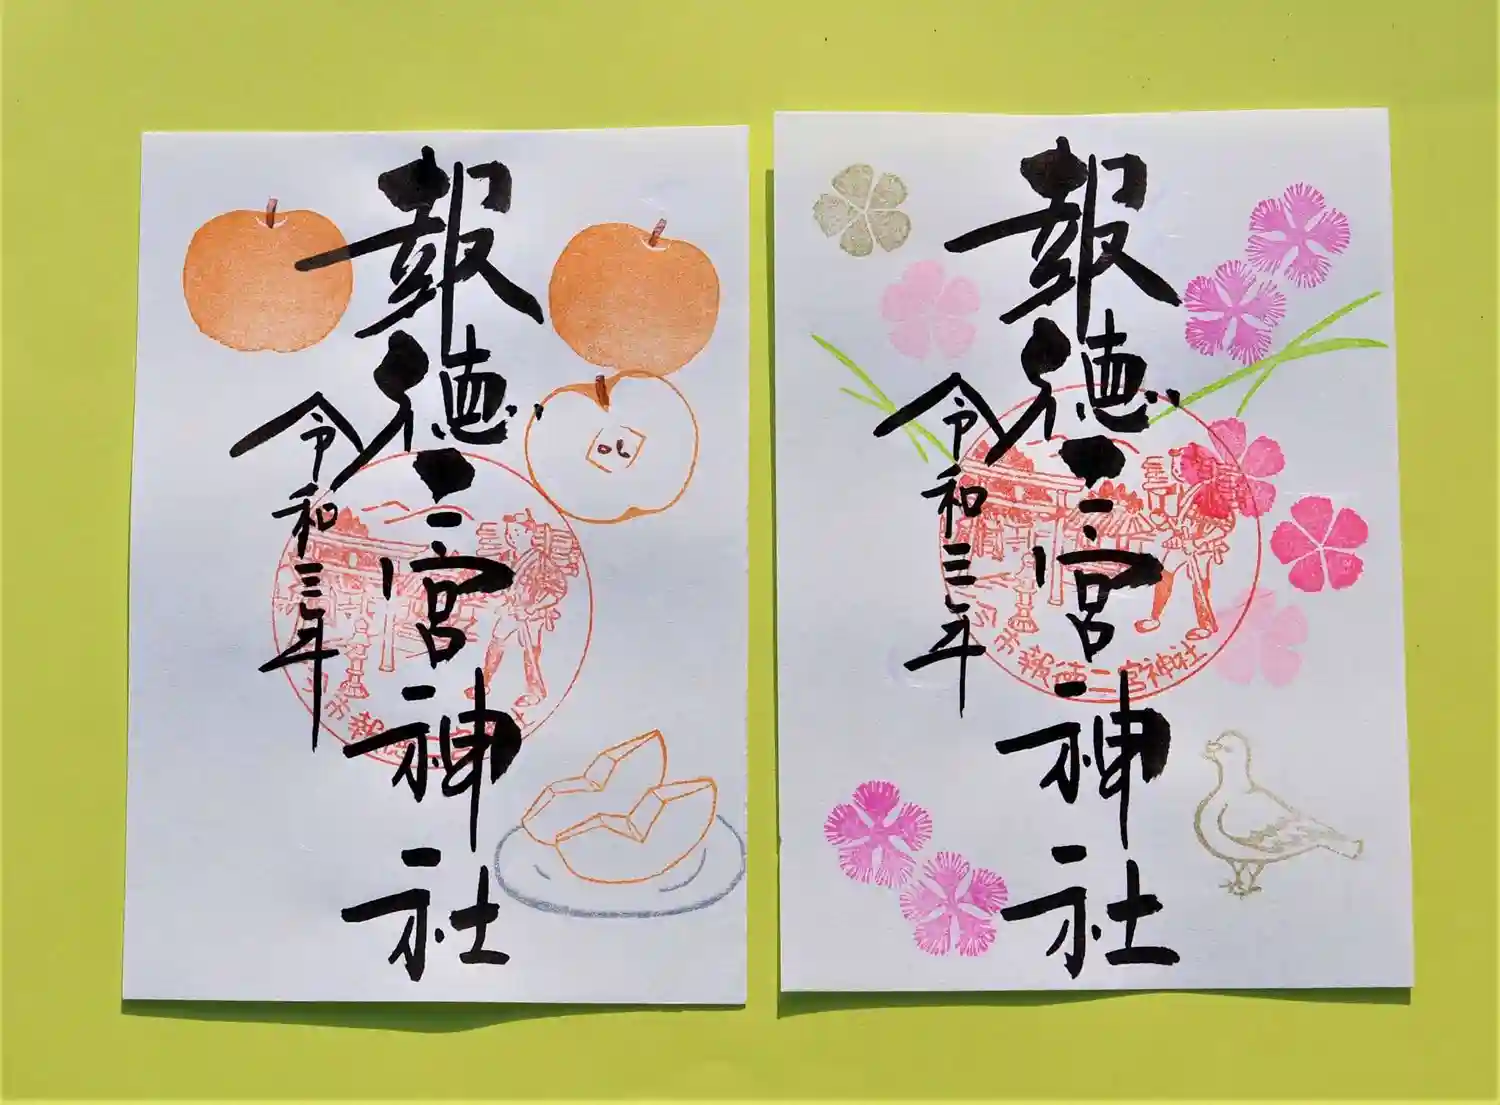 報徳二宮神社
令和三年
市報徳二宮神社
報徳二宮神社
令和三年
市報徳二宮神社